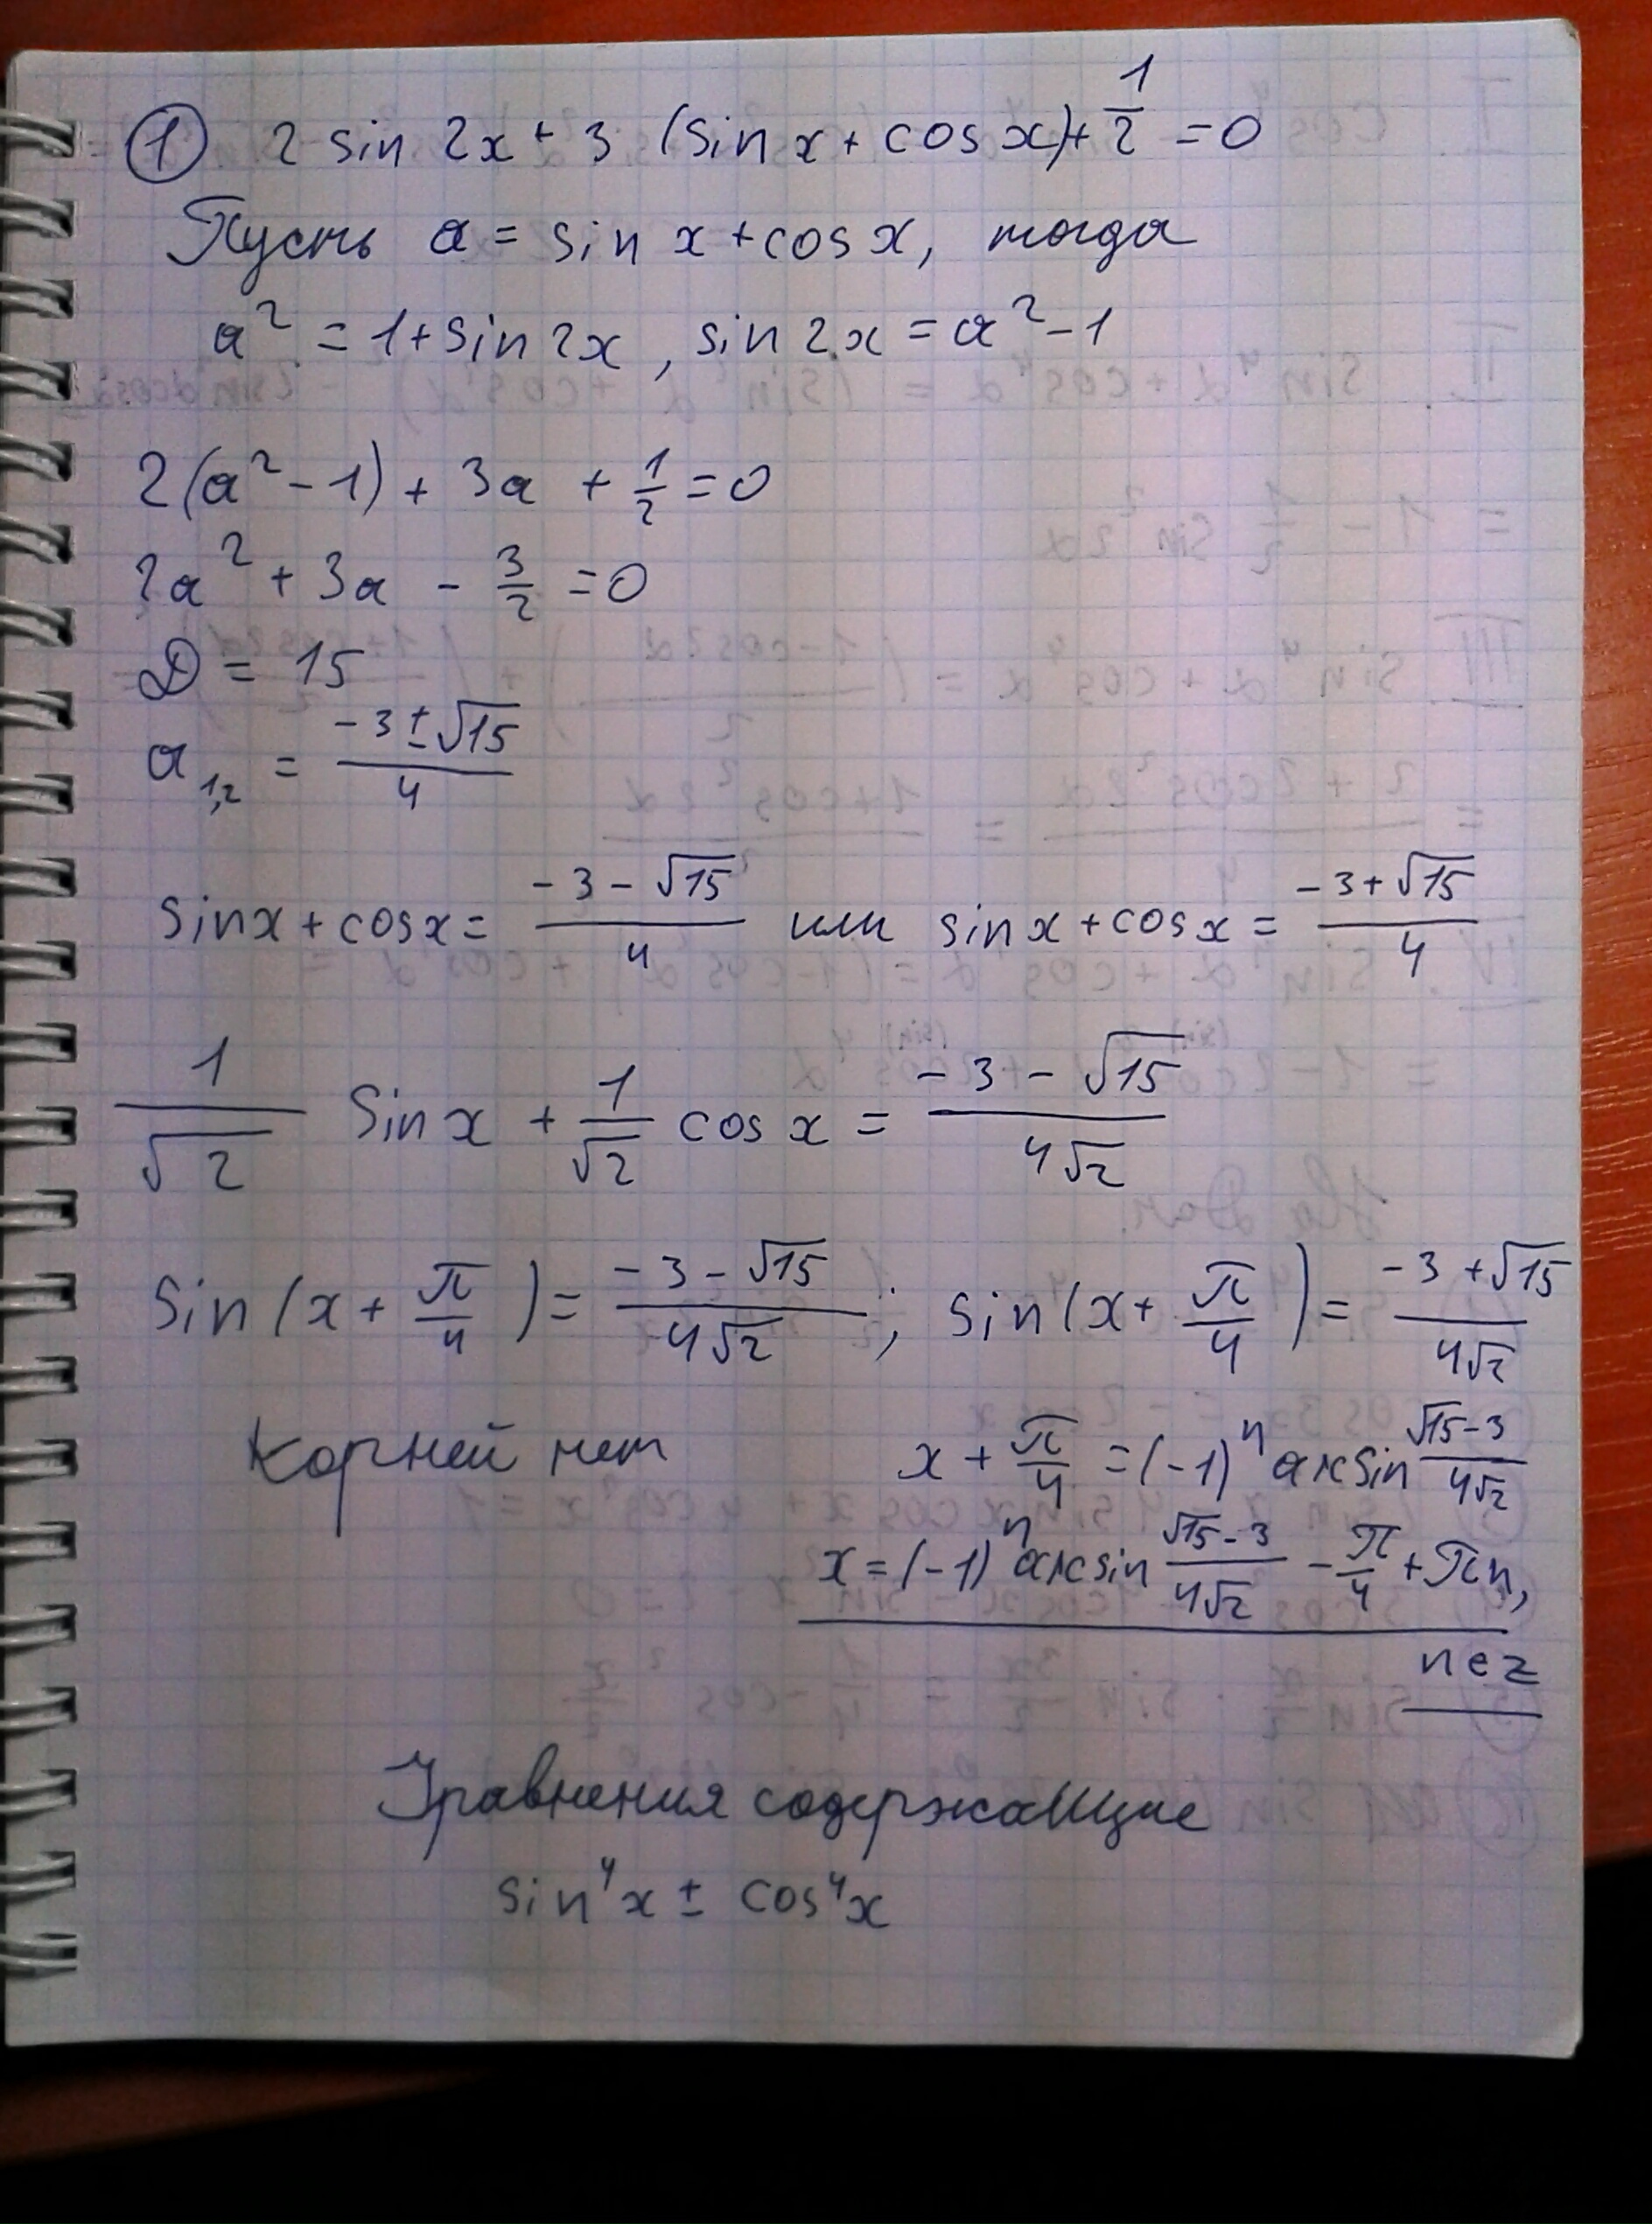 ① 2 sin 2x + 3 (sin x + cos x) + 1/2 = 0
Пусть a = sin x + cos x, тогда
a² = 1 + sin 2x, sin 2x = a² - 1
2(a² - 1) + 3a + 1/2 = 0
2a² + 3a - 3/2 = 0
D = 15
a₁,₂ = (-3 ± √15)/4
sin x + cos x = (-3 - √15)/4 или sin x + cos x = (-3 + √15)/4
1/√2 sin x + 1/√2 cos x = (-3 - √15)/(4√2)
sin(x + π/4) = (-3 - √15)/(4√2); sin(x + π/4) = (-3 + √15)/(4√2)
Корней нет x + π/4 = (-1)ⁿ arcsin (√15 - 3)/(4√2)
x = (-1)ⁿ arcsin (√15 - 3)/(4√2) - π/4 + πn,
n ∈ z
Уравнения содержащие
sin⁴x ± cos⁴x